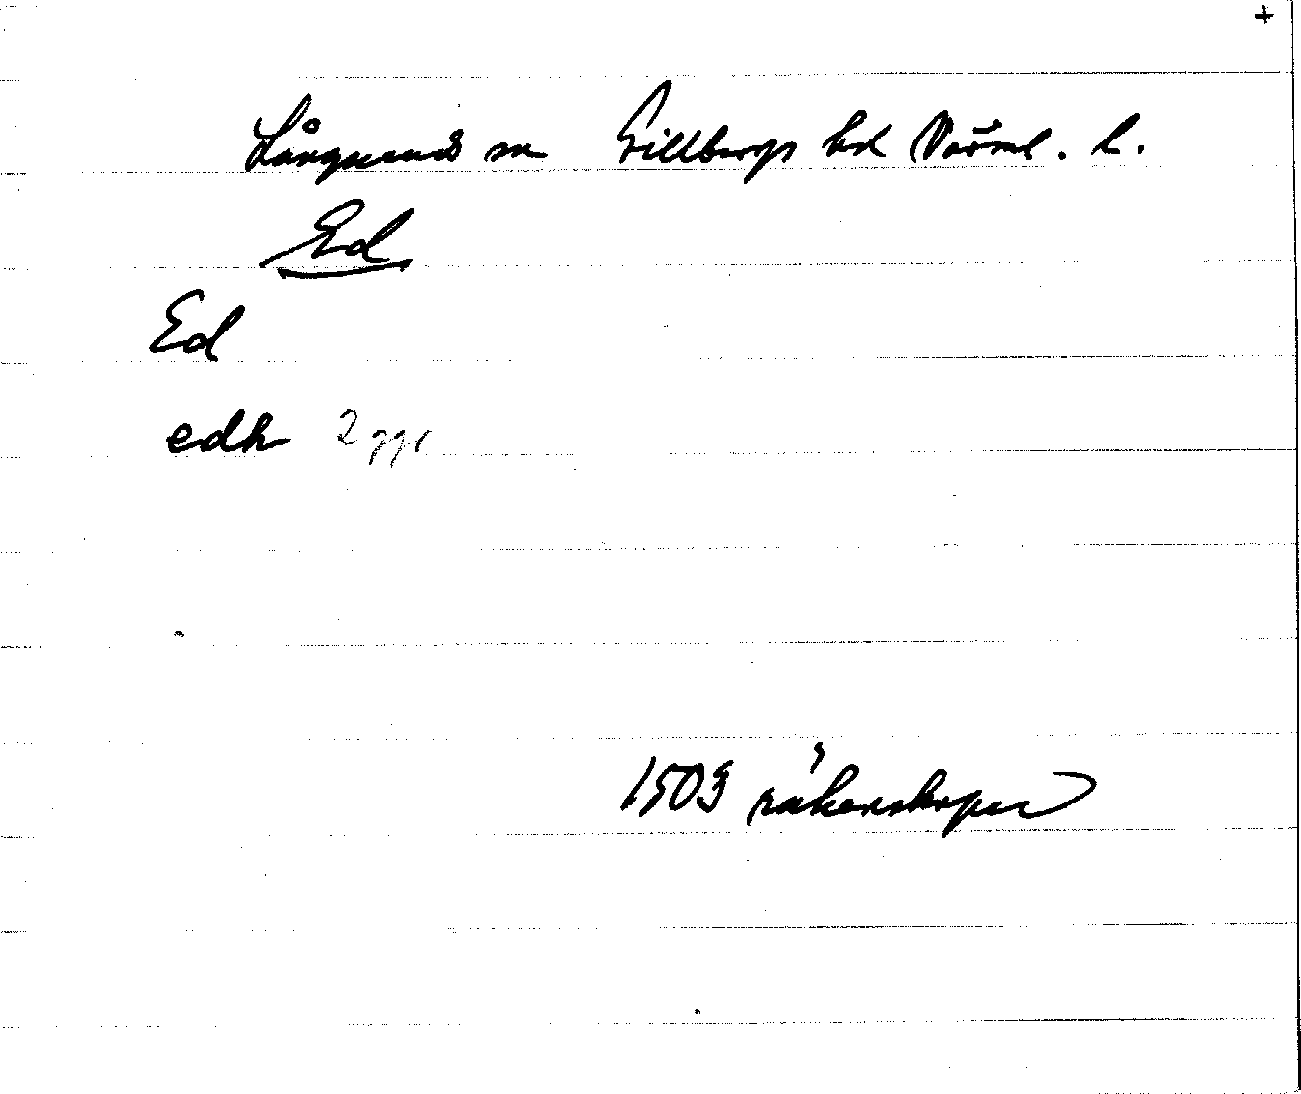 +
Långserud sn Gillbergs hd Värml. l.
Ed
Ed
edh 2 ggr
1503 räkenskaper